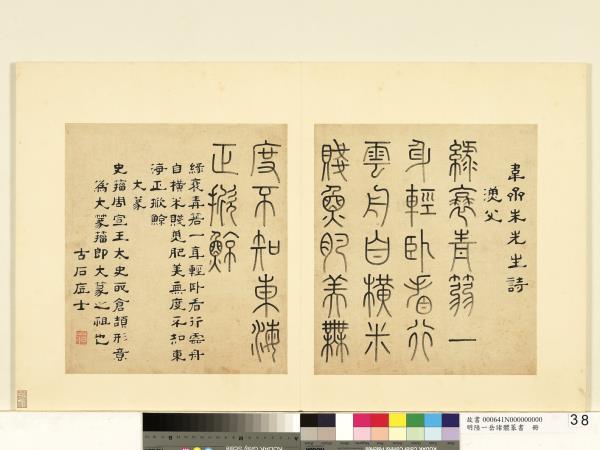 韋齋朱先生詩
漁父
綠蓑青篛一
身輕臥看行
雲舟自橫米
賤魚肥美無
度不知東海
正掀鯨
綠蓑青箬一身輕臥看行雲舟
自橫米賤魚肥美無度不知東
海正掀鯨
大篆
史籀周宣王太史取倉頡形意
為大篆籀即大篆之祖也
古石居士
故書 000641N000000000
明陸一岳諸體篆書 冊
38